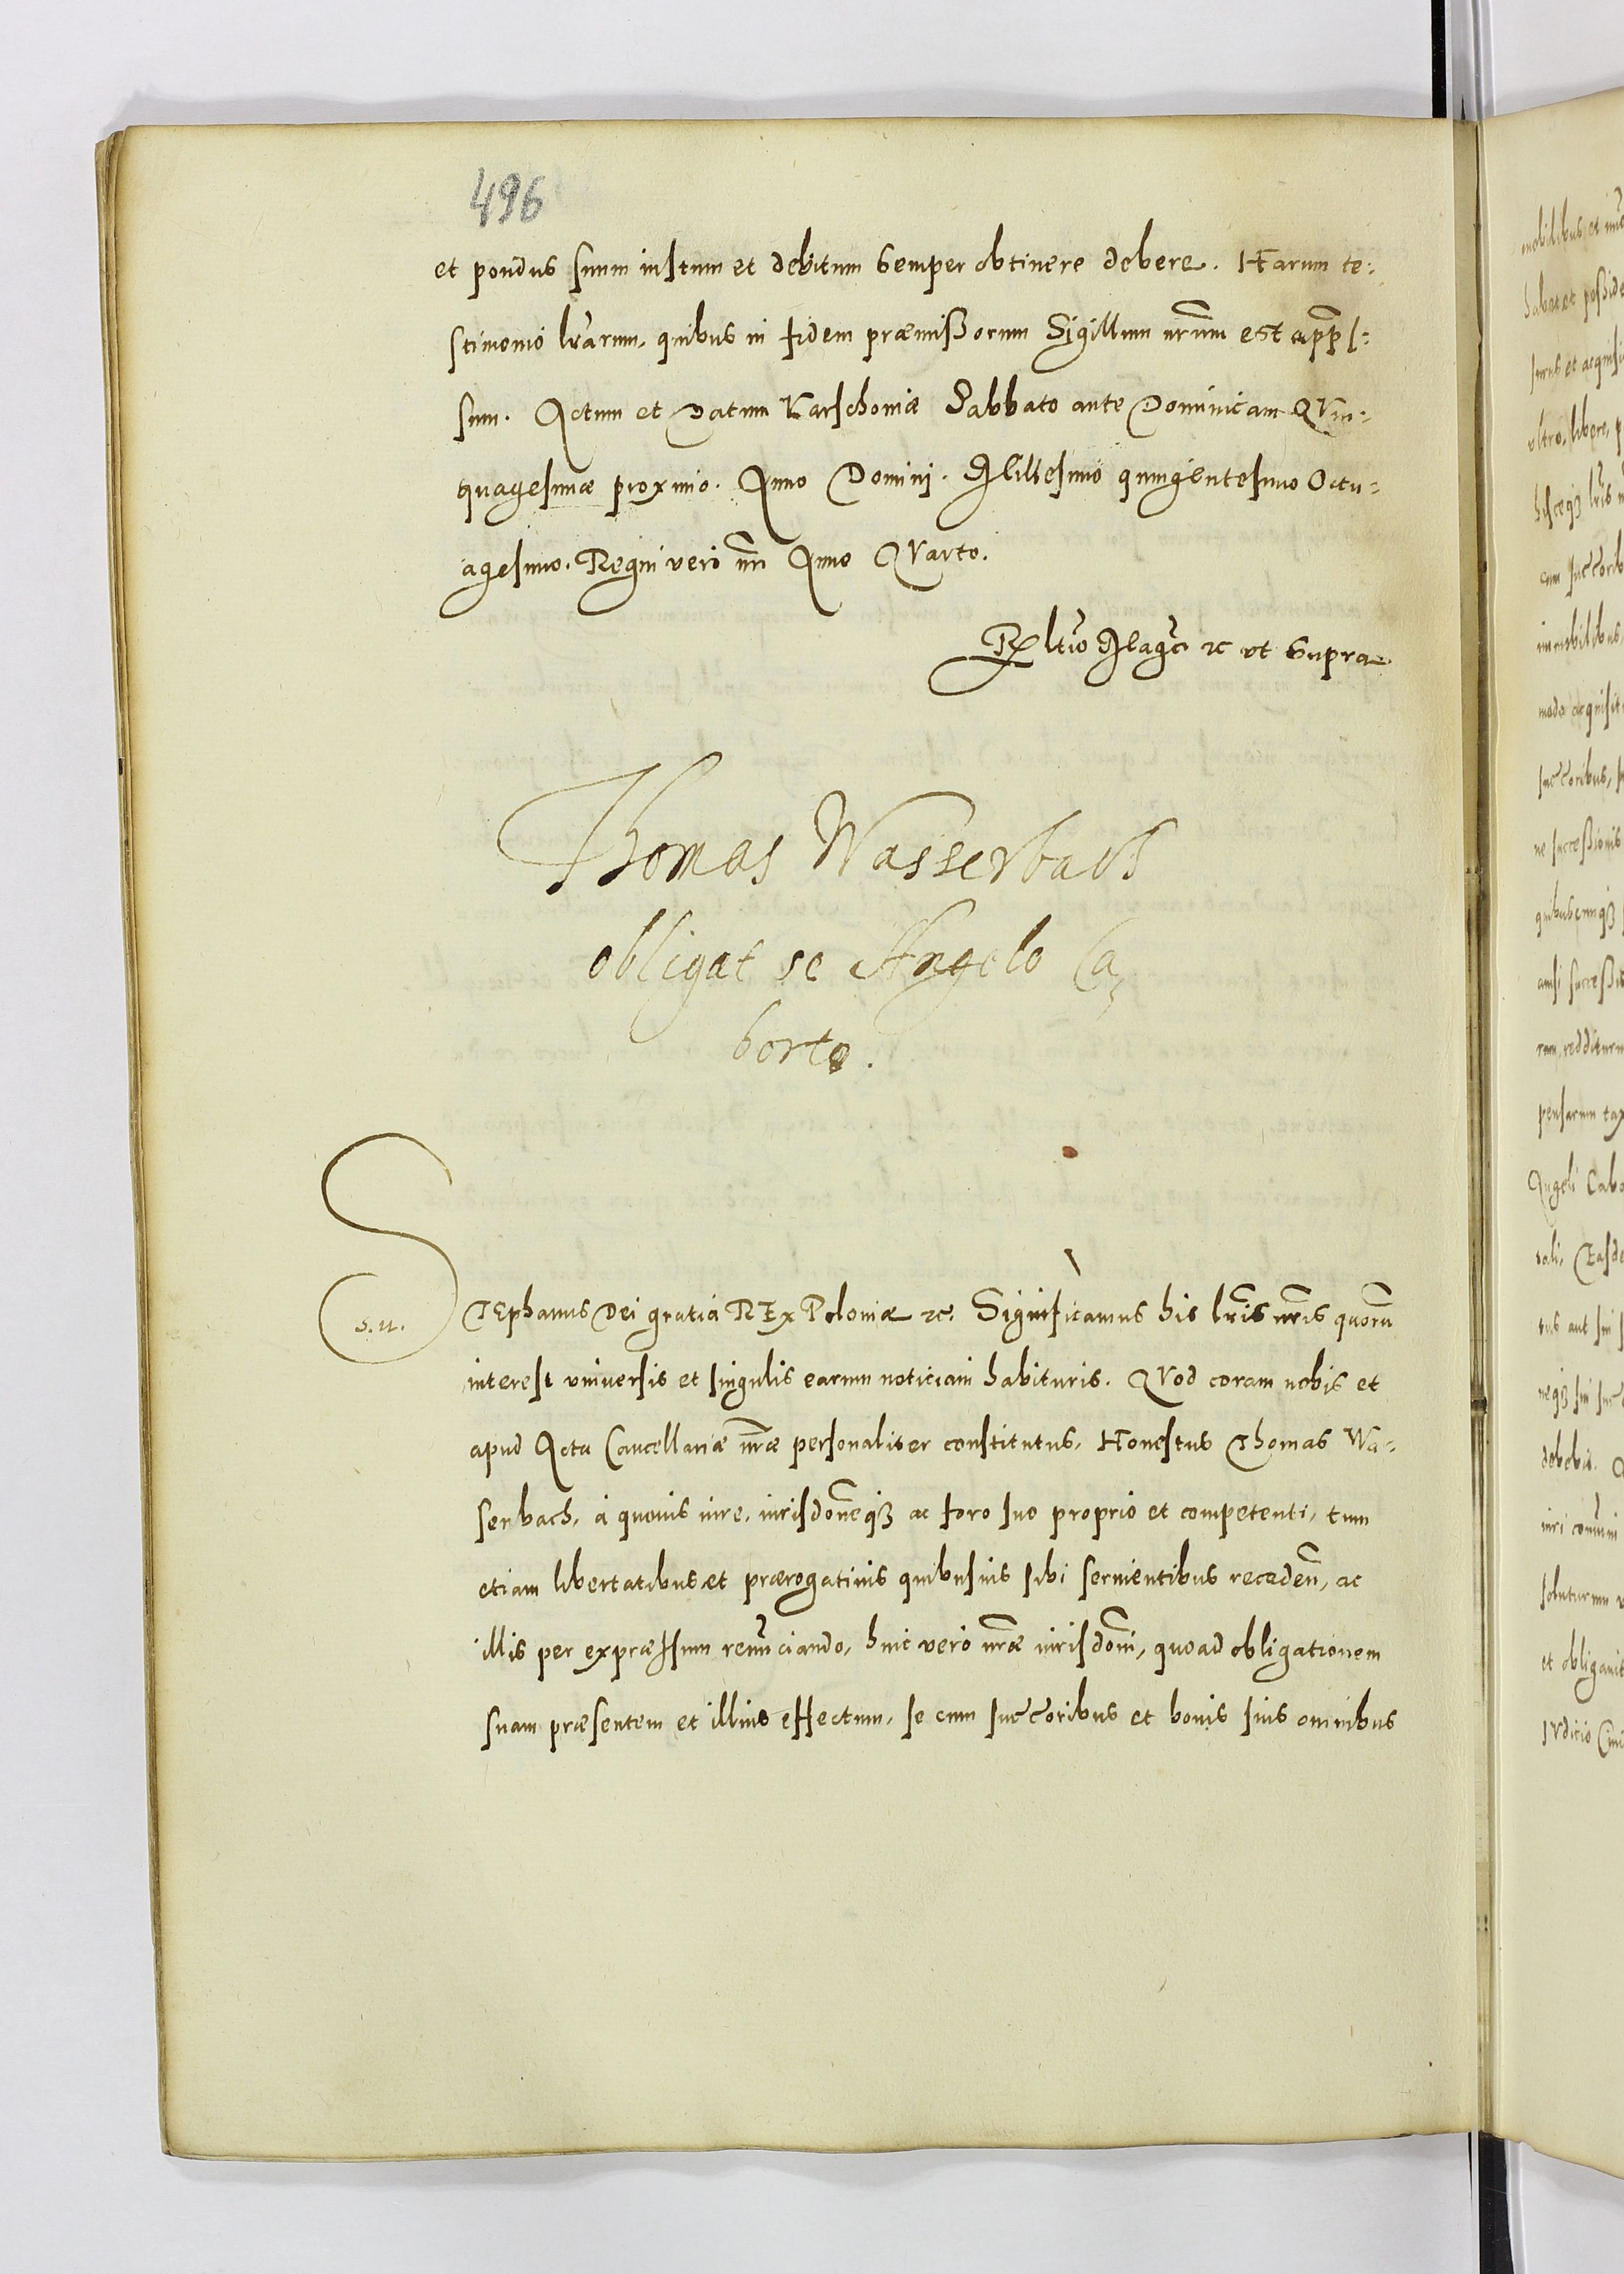 496
et pondus suum iustum et debitum semper obtinere debere. Harum te:
stimonio lrarum, quibus in fidem præmißorum Sigillum nrum est app[s]:
sum. Actum et Datum Varschoniæ Sabbato ante Dominicam QVin:
quagesimæ proximo. Anno Dominj. Millesimo quingentesimo Octu:
agesimo. Regni vero nri Anno QVarto.
Rltio Magci ꝛc vt supra
Thomas Wasserbach
obligat se Angelo Ca,
borto.
STEphanus Dei gratia REx Poloniæ ꝛc. Significamus his lris nris quorũ
s.n.
interest vniuersis et singulis earum noticiam habituris. QVod coram nobis et
apud Acta Cancellariæ nræ personaliter constitutus, Honestus Thomas Wa:
serbach, à quouis iure, iurisdoneqȝ ac foro suo proprio et competenti, tum
etiam libertatibus et prærogatiuis quibusuis sibi seruientibus receden, ac
illis per expræssum renunciando, huic vero nræ iurisdoni, quoad obligationem
suam præsentem et illius effectum, se cum succoribus et bonis suis omnibus
mobilibus et
habet et poßide
iures et acquisi
vltro, libere, p
hisceqȝ lris
cum succorib
immobilibus,
modo acquisit
succoribus,
ne succeßionis
quibuscunqȝ
ansi succeßio
rum, redditum
pensarum tax
Angeli Cabo
sali. Easde
tus aut sui
neqȝ sui suc
debebit.
iuri comuni
soluturum
et obligauit
IVditio Ciui